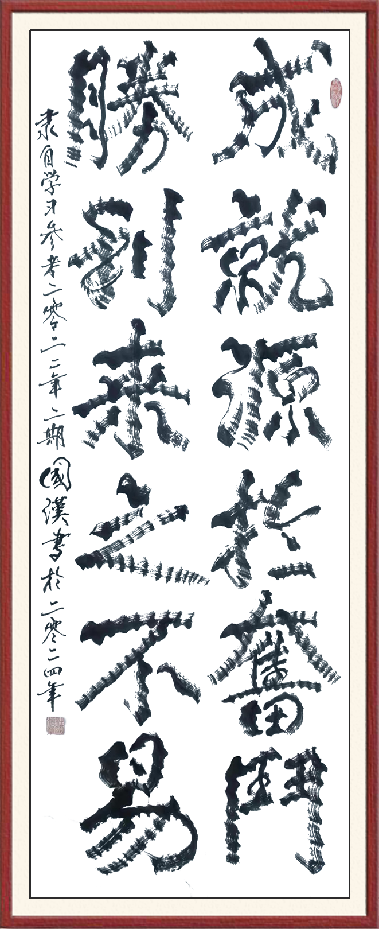 成就源於奮鬥
勝利來之不易
录自学习参考二零二二年二期國漢書於二零二四年